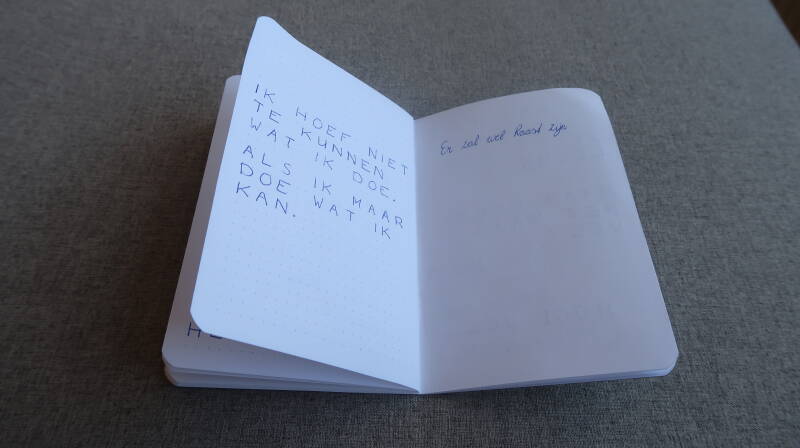 IK HOEF NIET
TE KUNNEN
WAT IK DOE.
ALS IK MAAR
DOE WAT IK
KAN.
Er zal wel haast zijn